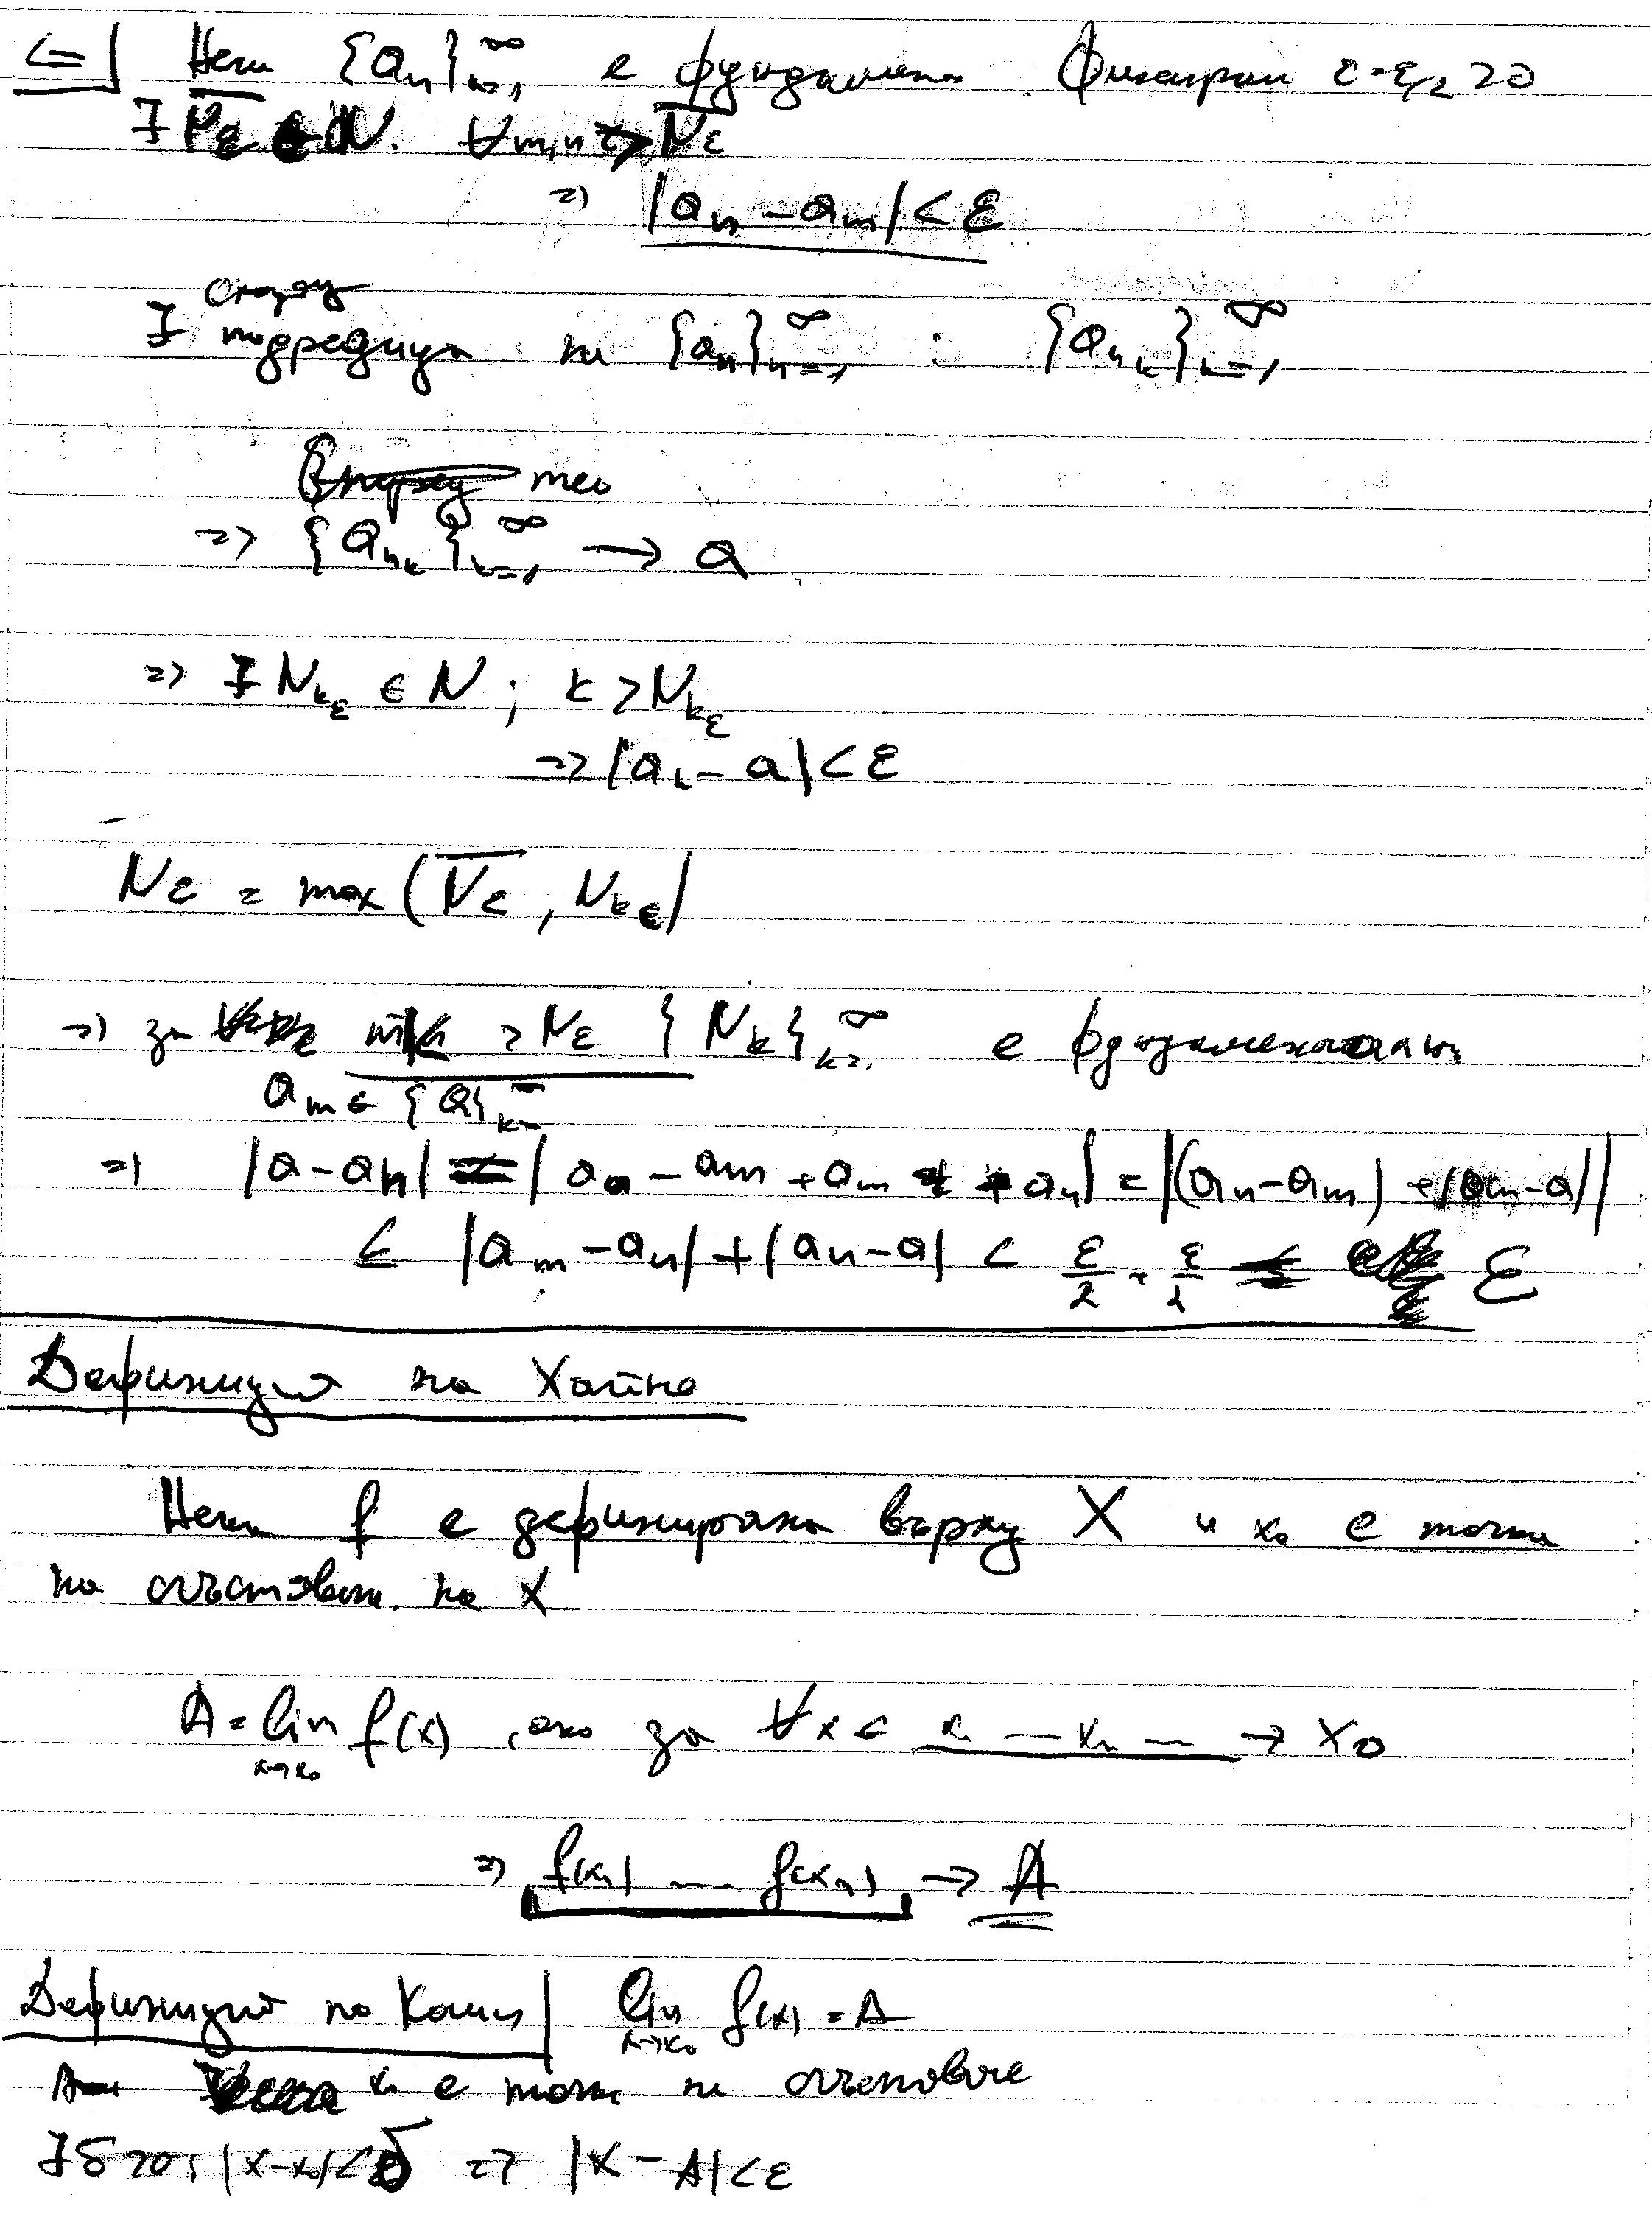 <=| Нека {a_n}_{n=1}^∞ е фундамент. Фиксирам ε = ε/2 > 0
∃ N̅_ε ∈ N. ∀ m,n > N̅_ε
=> |a_n - a_m| < ε
∃ подредица на {a_n}_{n=1}^∞ : {a_{n_k}}_{k=1}^∞
=> {a_{n_k}}_{k=1}^∞ → a
=> ∃ N_{k_ε} ∈ N ; k > N_{k_ε}
=> |a_k - a| < ε
N_ε = max(N̅_ε, N_{k_ε})
=> за > N_ε {N_k}_{k=1}^∞ е фундаментална
a_m ∈ {a}_{k=}^∞
=> |a - a_n| = |a_n - a_m + a_m + a_n| = |(a_n - a_m) + (a_m - a)|
≤ |a_m - a_n| + |a_n - a| < ε/2 + ε/2 = ε
Дефиниция на Хайне
Нека f е дефинирана върху X и x_0 е точка
на сгъстяван. на X
A = lim_{x→x_0} f(x), ако за ∀ x ∈ x_1 ... x_n ... → x_0
=> f(x_1) ... f(x_n) → A
Дефиниция по Коши | lim_{x→x_0} f(x) = A
x_0 е точка на сгъстяване
∃ δ > 0; |x - x_0| < δ => |x - A| < ε